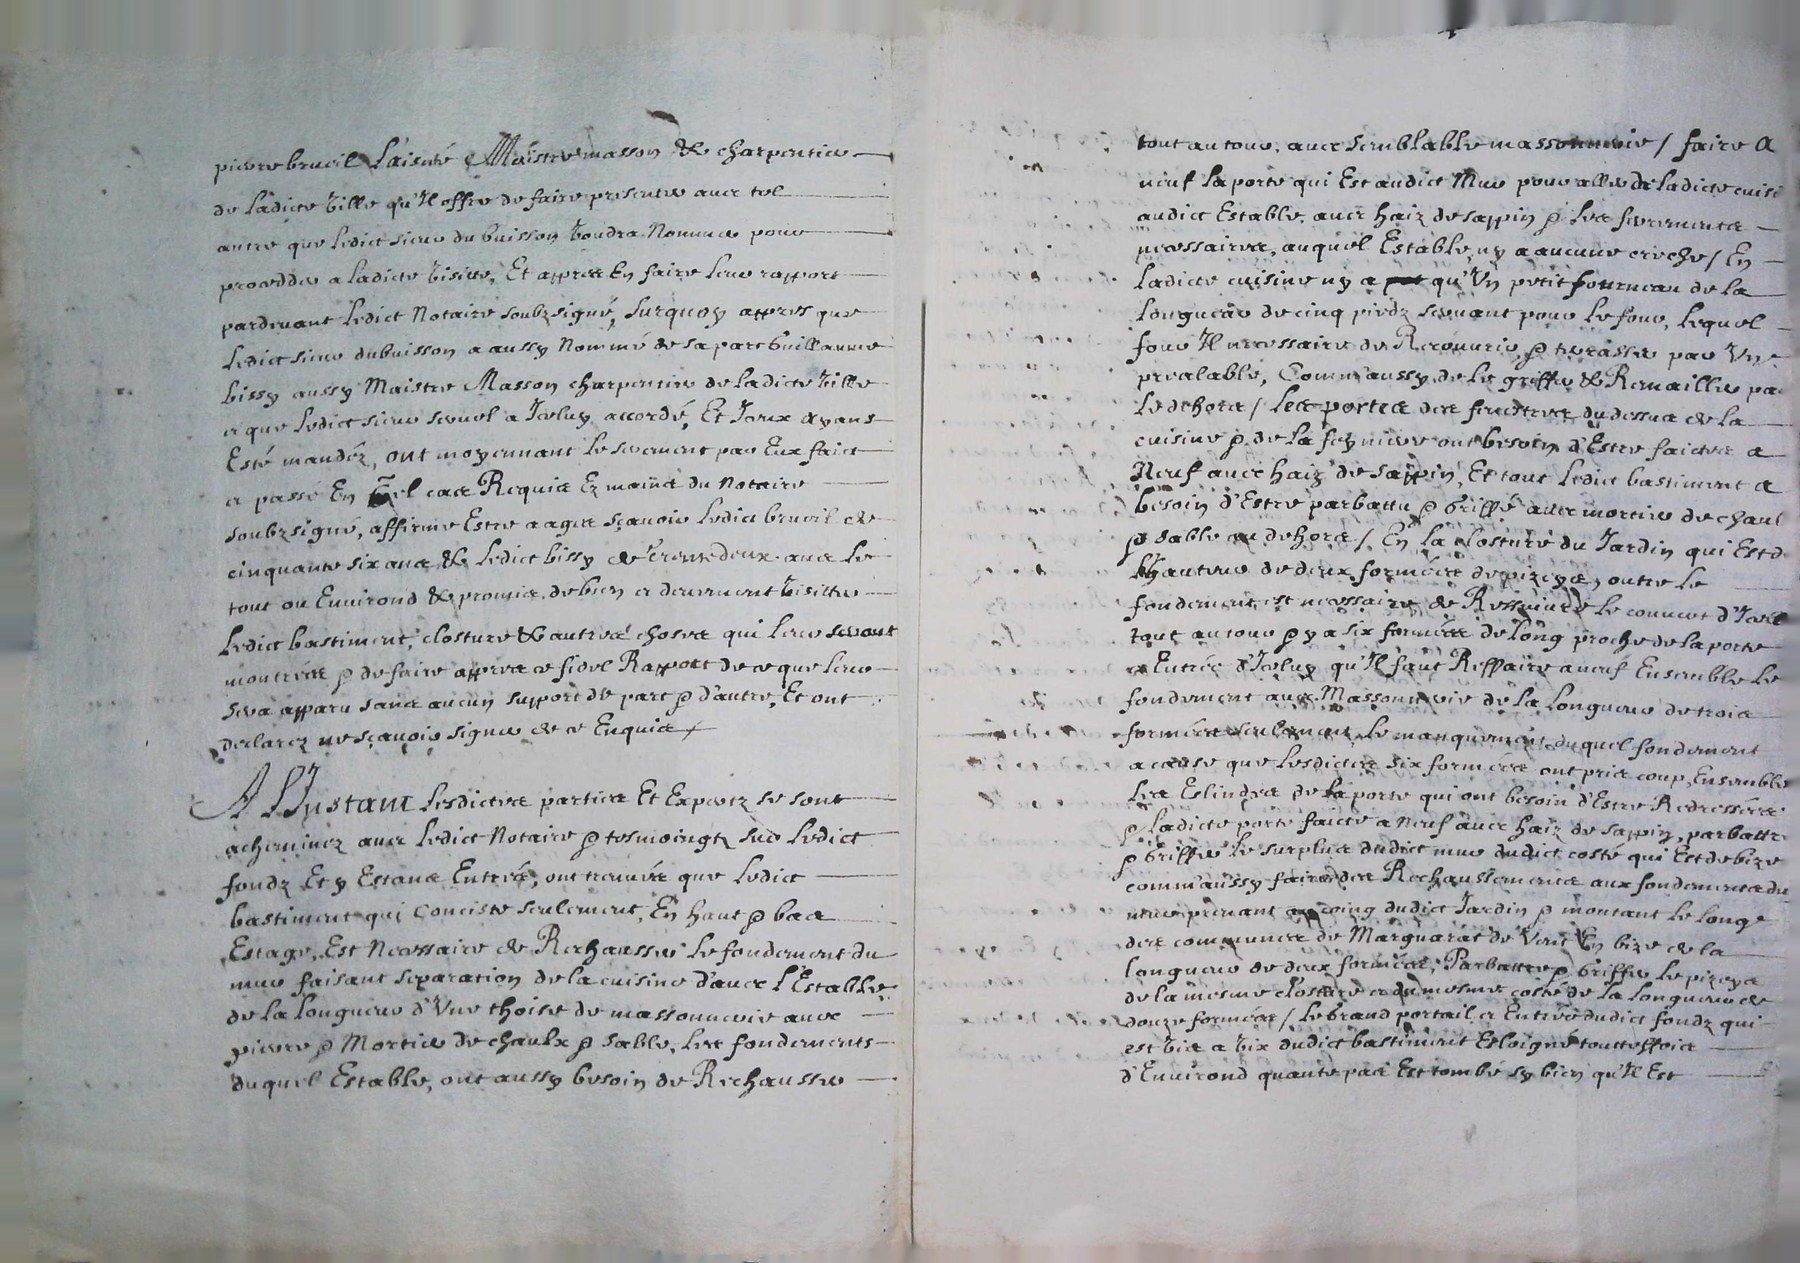 pierre brueil laisné Maistre masson & charpentier
de ladicte ville qu'Il offre de faire presenter avec tel
autre que ledict sieur du buisson voudra Nommer pour
procedder a ladicte visitte, Et appres En faire leur rapport
pardevant ledict Notaire soubzsigné, surquoy appres que
ledict sieur dubuisson a aussy Nommé de sa part Guillaume
bissy aussy Maistre Masson charpentier de ladicte ville
et que ledict sieur a Iceluy accordé, Et Iceux ayans
Esté mandéz, ont moyennant le serement par Eux faict
et passé En tel cas Requis Ez mains du Notaire
soubzsigné, affirmé Estre aages sçavoir ledict brueil de
cinquante six ans & ledict bissy de trente deux ans le
tout ou Environd & promis de bien et deuement visitter
ledict bastiment, closture & autres choses qui leur seront
montrées & de faire appres ce fidel Rapport de ce que leur
sera apparu sans aucun support de part & d'autre, Et ont
declarez ne sçavoir signer de ce Enquis
A l'Instant lesdictes parties Et Expertz se sont
acheminez avec ledict Notaire & tesmoingtz sur ledict
fondz Et y Estans Entrés, ont treuvés que ledict
bastiment qui Conciste seulement, En haut & bas
Estage, Est Necessaire de Rechausser le fondement du
mur faisant separation de la cuisine d'avec l'Estable
de la longueur d'Une thoise de massonnerie avec
pierre & Mortier de chaulx & sable, les fondements
duquel Estable, ont aussy besoin de Rechausser
tout autour, avec semblable massonnerie / faire a
neuf la porte qui Est audict Mur pour aller de ladicte cuisi
audict Estable, avec haiz de sappin & les ferrements
necessaires, auquel Estable, ny a aucune creche / En
ladicte cuisine ny a qu'Un petit fourneau de la
longueur de cinq piedz servant pour le four, lequel
four Il necessaire de Recouurir & terrasser par Un
prealable, Comm'aussy de le griffer & Remailler pa
le dehors / les portes des fenestres du dessus de la
cuisine & de la ont besoin d'Estre faictes a
Neuf avec haiz de Sappin, Et tout ledict bastiment a
besoin d'Estre parbattu & Griffé avec mortier de chaul
& sable au dehors / En la Closture du Jardin qui Est d
hauteur de deux formées de pizeys, outre le
fondement est necessaire de le convert d'Icel
tout autour & y a six formées de long proche de la porte
et Entrée d'Iceluy qu'Il faut Reffaire a neuf Ensemble le
fondement avec Massonnerie de la longueur de trois
formées seulement, le manquement duquel fondement
a cause que lesdictes six formées ont pris coup, Ensemble
les Eslindres de la porte qui ont besoin d'Estre Redressées
& ladicte porte faicte a Neuf avec haiz de sappin, parbattre
& Griffer le surplus dudict mur dudict costé qui Est de bize
comm'aussy faire des Rechaussements aux fondements du
mur prenant au coing dudict Jardin & montant le long
des communes de Marguarat de Vent En bize de la
longueur de deux formées, Parbattre & Griffer le pizeys
de la mesme closture et du mesme costé de la longueur de
douze formées / Le Grand portail et Entrée dudict fondz qui
est vis a vix dudict bastiment Esloigné touttesfois
d'Environd quante pas Est tombé sy bien qu'Il Est